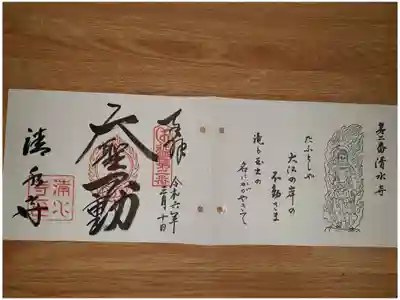 第二番清水寺
たふとしや
大江の岸の
不動さま
滝も玉出の
名にかがやきて
奉拝
令和六年
月十日
大聖不動
清水寺
清水寺